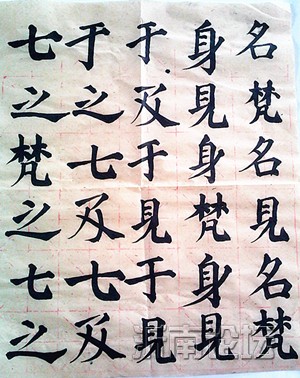 名梵名見名梵
身見身梵身見
于及于見于見
于之七及七及
七之梵之七之
南论坛